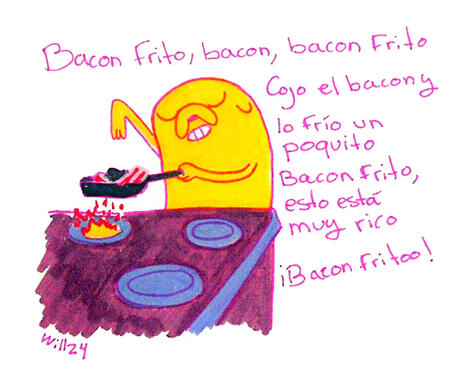 Bacon frito, bacon, bacon frito
Cojo el bacon y
lo frío un
poquito
Bacon frito,
esto está
muy rico
¡Bacon fritoo!
Will24